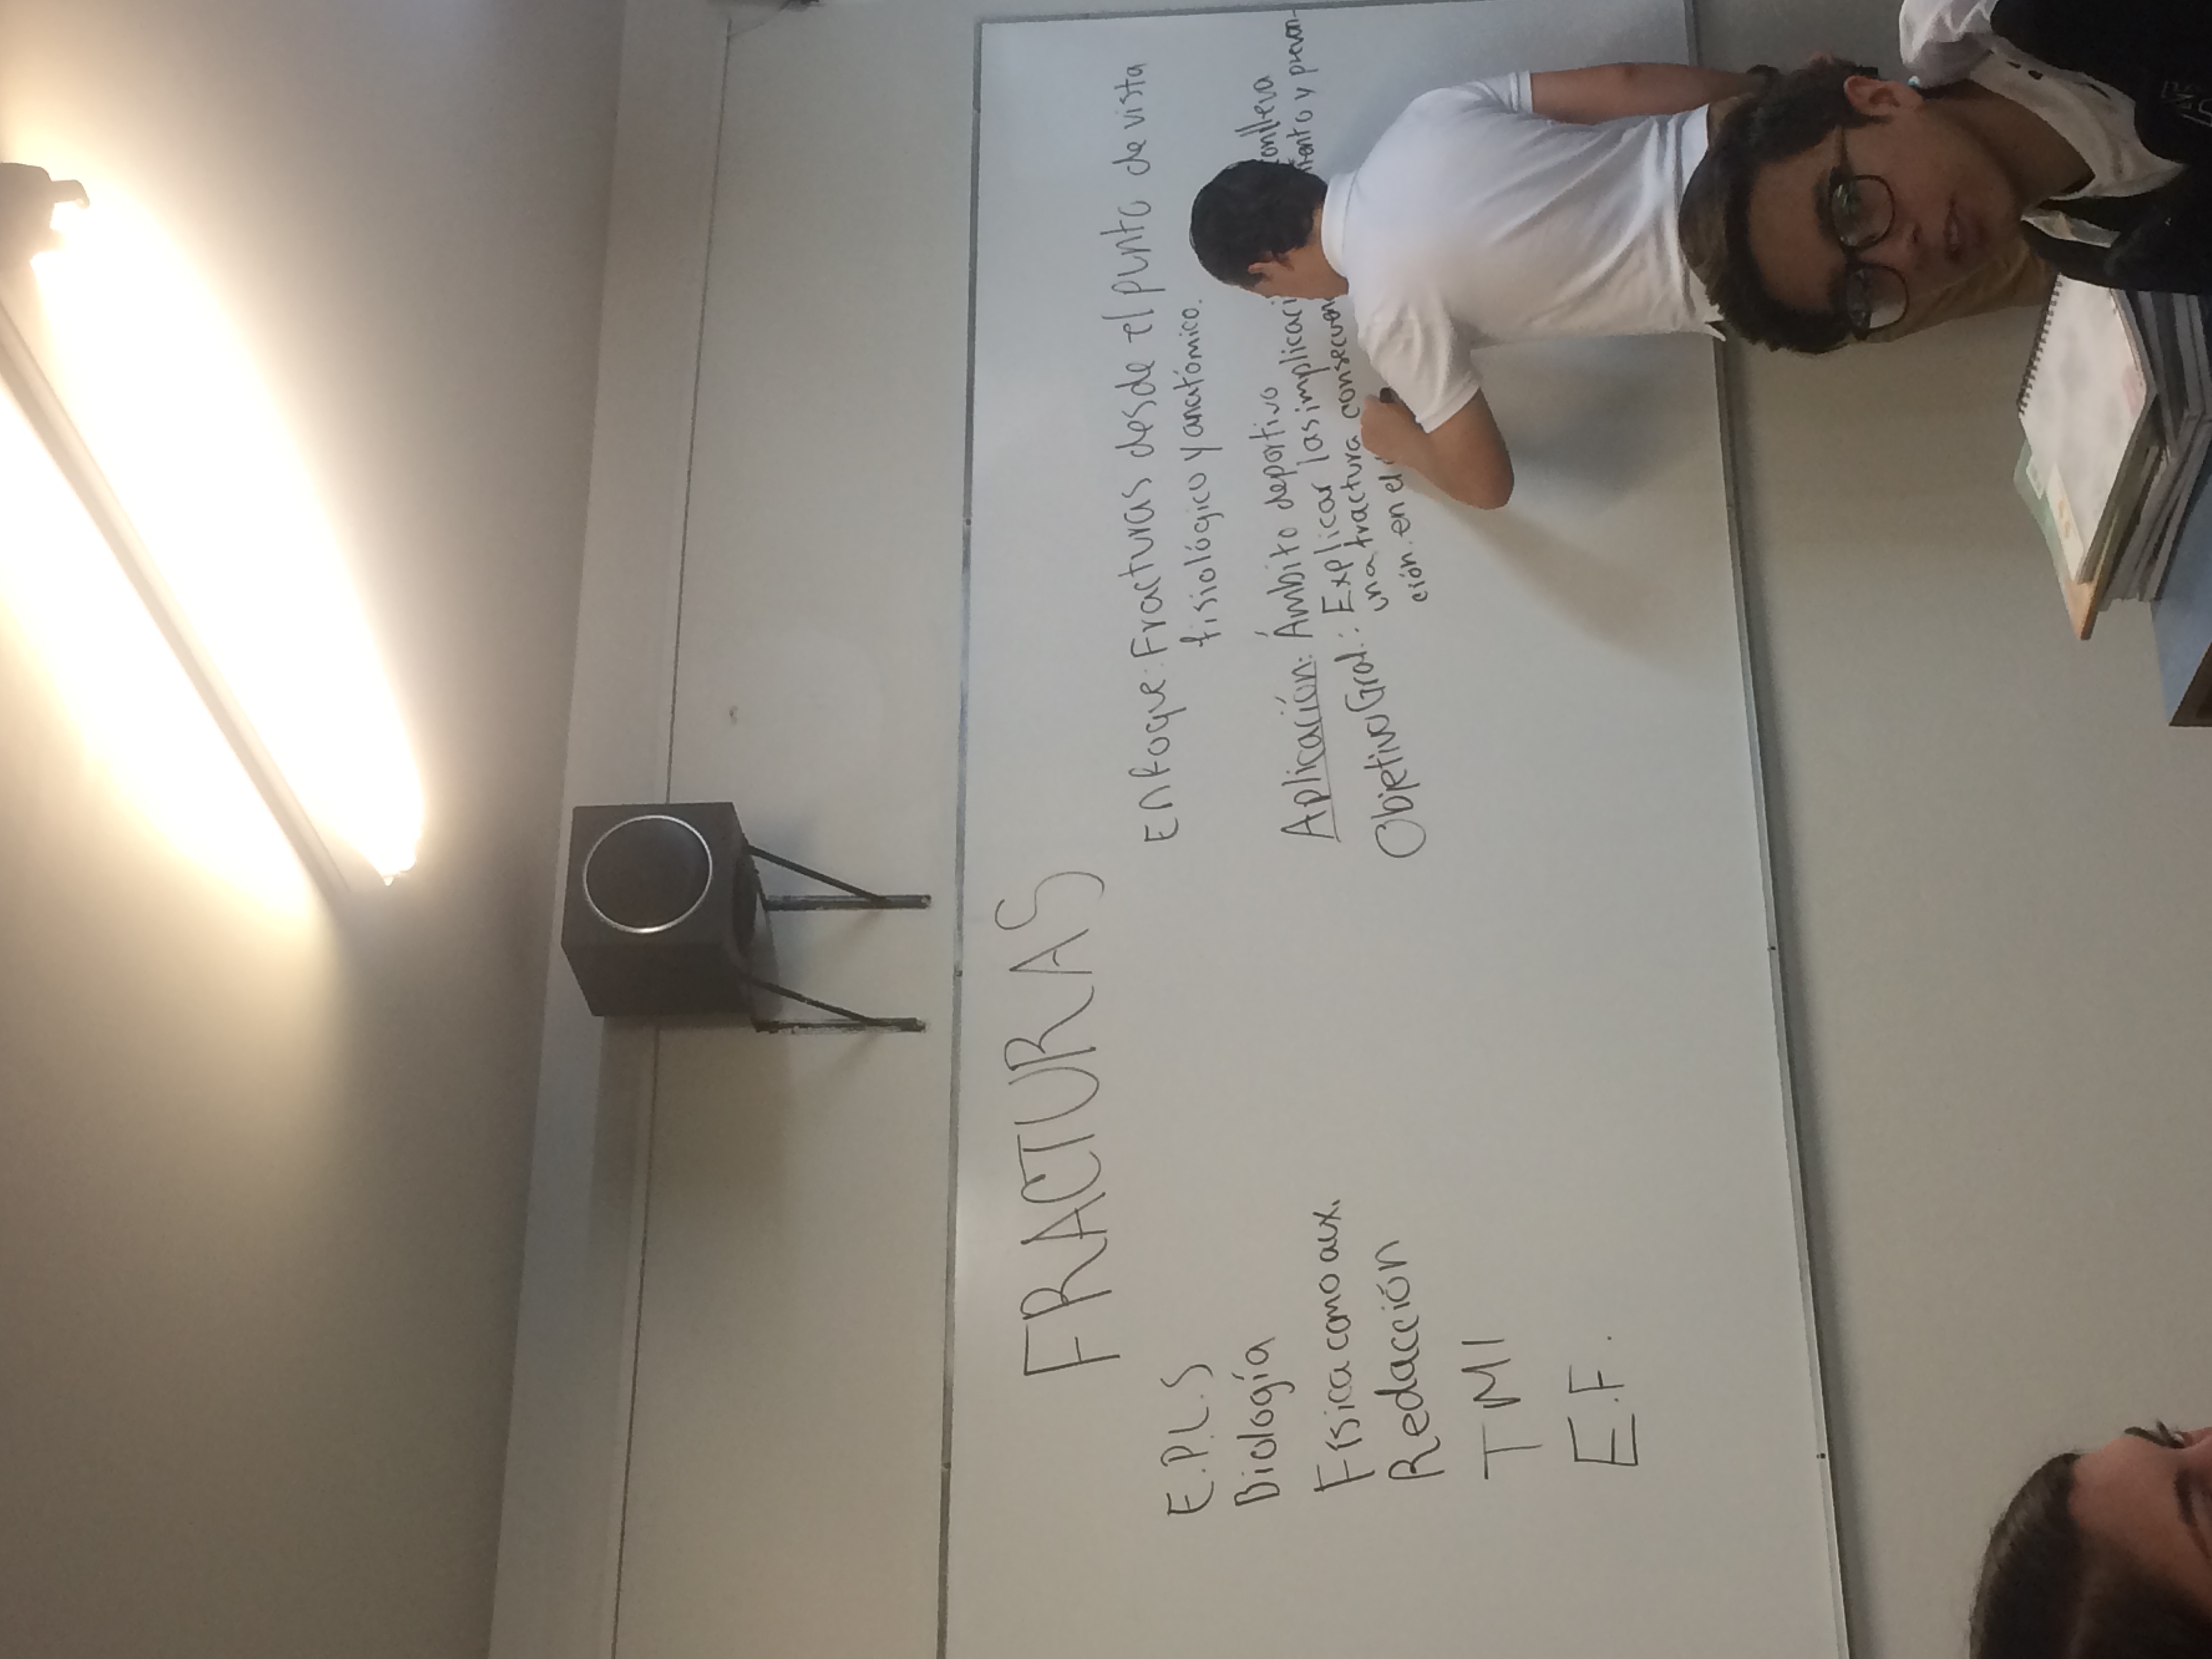 FRACTURAS
E.P.L.S
Biología
Física como aux.
Redacción
TMI
E.F.
Enfoque: Fracturas desde el punto de vista
fisiológico y anatómico.
Aplicación: Ámbito deportivo
Objetivo Gral.: Explicar las
una fractura y preven-
ción. en el